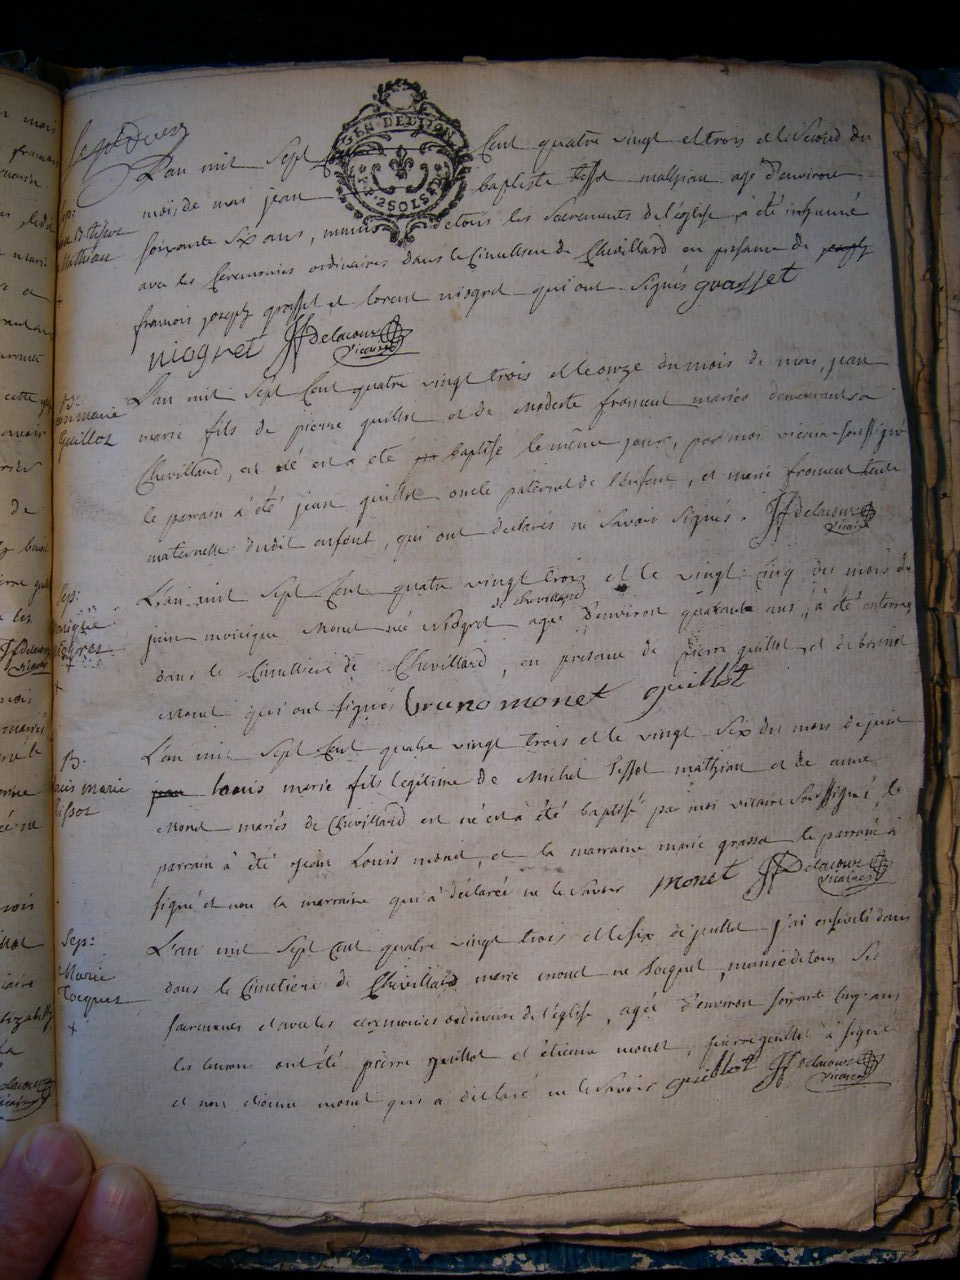 GEN DE DIJON
2 SOLS
L'an mil sept Cent quatre vingt et trois et le Second du
mois de mas jean baptiste tissot mathian age d'environ
soixante six ans, munis de tous les Sacrements de l'église, à été inhumé
avec les Ceremonies ordinaires dans le Cimetiere de Chevillard en presance de
francois joseph grosset et lorent niogret qui ont Signés grosset
niogret delacour vicaire
Sep:
Jean B. tissot
Mathian
L'an mil Sept Cent quatre vingt trois et le onze du mois de mas, jean
marie fils de pierre guillot et de modeste froment mariés demeurants a
Chevillard, est né est à été baptisé le même jour, par moi vicaire soussigné
le parrain à été jean guillot oncle paternel de l'enfant, et marie froment tante
maternelle dudit enfent, qui ont declarés ne Savoir Signés. delacour
vicaire
B:
jean marie
Guillot
L'an mil Sept Cent quatre vingt trois et le vingt Cinq du mois de
juin monique Monet née Niogret de chevillard agée d'environ quarante ans, à été enterrée
dans le Cimettiere de Chevillard, en presance de pierre guillot et de bruno
Monet qui ont signés bruno monet guillot
Sep:
monique
niogret
L'an mil Sept Cent quatre vingt trois et le vingt Six du mois de juin
louis marie fils legitime de Michel tissot mathian et de anne
Monet mariés de Chevillard est né est à été baptisé par moi vicaire Soussigné, le
parrain à été Jean Louis monet, et la marraine marie grosset le parrain à
signé et non la marraine qui à déclarée ne le Savoir monet delacour
vicaire
B.
louis marie
tissot
L'an mil Sept Cent quatre vingt trois et le six de juillet j'ai enseveli dans
dans le Cimetiére de Chevillard marie monet ne tocquet, munie de tous Ses
sacremens et avec les ceremonies ordinaire de l'église, agée d'environ soixante Cinq ans
les temoins ont été pierre guillot et étienne monet, pierre guillot à signé
et non etienne monet qui à déclaré ne le Savoir guillot delacour
vicaire
Sep:
Marie
Tocquet